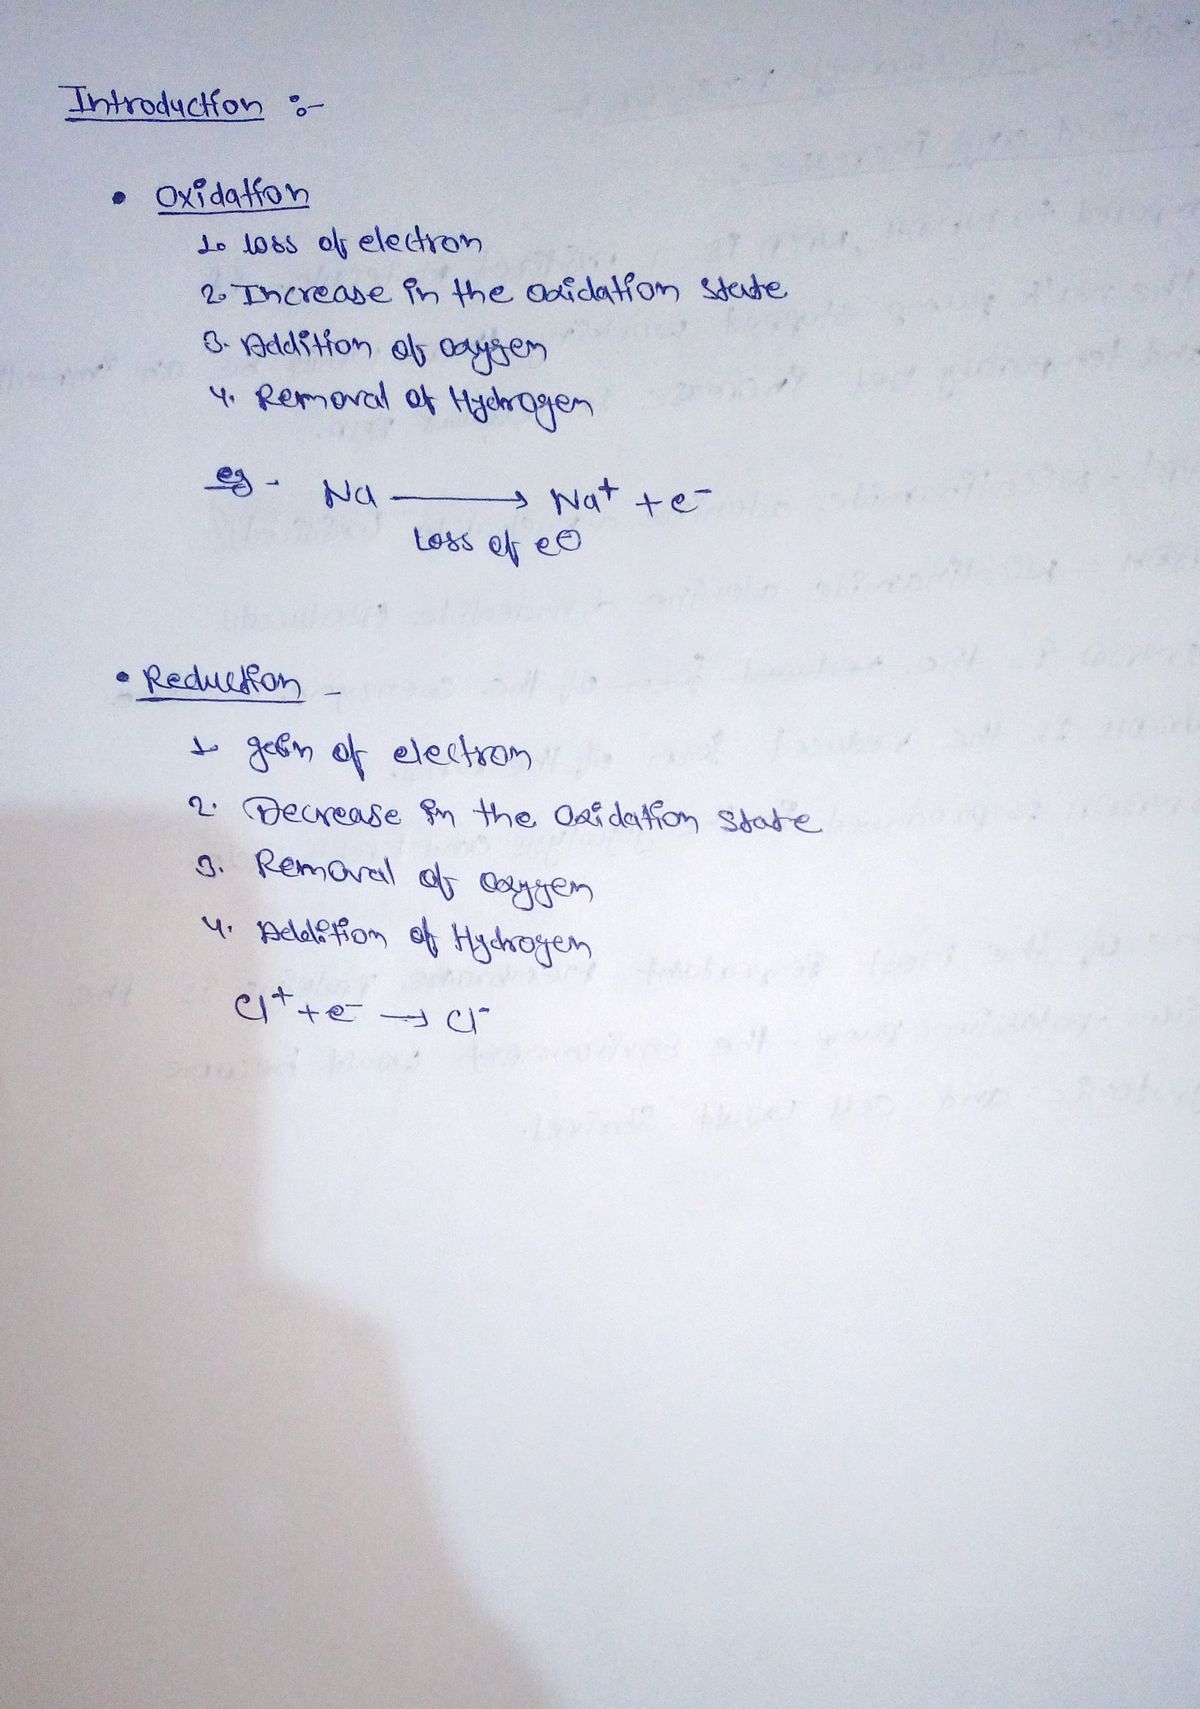 Introduction :-
• Oxidation
1. loss of electron
2. Increase in the oxidation state
3. Addition of oxygen
4. Removal of Hydrogen
eg - Na → Na⁺ + e⁻
Loss of e⊖
• Reduction -
1. gain of electron
2. Decrease in the oxidation state
3. Removal of oxygen
4. Addition of Hydrogen
Cl⁺ + e⁻ → Cl⁻